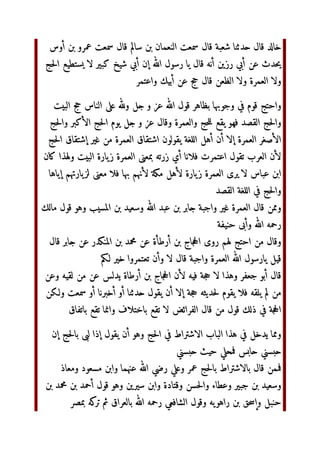 خالد قال حدثنا شعبة قال سمعت النعمان بن سالم قال سمعت عمرو بن أوس
يحدث عن أبي رزين أنه قال يا رسول الله إن أبي شيخ كبير لا يستطيع الحج
ولا العمرة ولا الظعن قال حج عن أبيك واعتمر
واحتج قوم في وجوبها بظاهر قول الله عز و جل ولله على الناس حج البيت
والحج القصد فهو يقع للحج والعمرة وقال عز و جل يوم الحج الأكبر والحج
الأصغر العمرة إلا أن أهل اللغة يقولون اشتقاق العمرة من غير إشتقاق الحج
لأن العرب تقول اعتمرت فلانا أي زرته بمعنى العمرة زيارة البيت ولهذا كان
ابن عباس لا يرى العمرة زيارة لأهل مكة لأنهم بها فلا معنى لزيارتهم إياها
والحج في اللغة القصد
وممن قال العمرة غير واجبة جابر بن عبد الله وسعيد بن المسيب وهو قول مالك
رحمه الله وأبى حنيفة
وقال من احتج لهم روى الحجاج بن أرطأة عن محمد بن المنكدر عن جابر قال
قيل يارسول الله العمرة واجبة قال لا وأن تعتمروا خير لكم
قال أبو جعفر وهذا لا حجة فيه لأن الحجاج بن أرطاة يدلس عن من لقيه وعن
من لم يلقه فلا يقوم لحديثه حجة إلا أن يقول حدثنا أو أخبرنا أو سمعت ولكن
الحجة في ذلك قول من قال الفرائض لا تقع باختلاف وانما تقع باتفاق
ومما يدخل في هذا الباب الاشتراط في الحج وهو أن يقول إذا لبى بالحج إن
حبسني حابس فمحلي حيث حبستني
فممن قال بالاشتراط بالحج عمر وعلي رضي الله عنهما وابن مسعود ومعاذ
وسعيد بن جبير وعطاء والحسن وقتادة وابن سيرين وهو قول أحمد بن محمد بن
حنبل وإسحق بن راهويه وقول الشافعي رحمه الله بالعراق ثم تركه بمصر